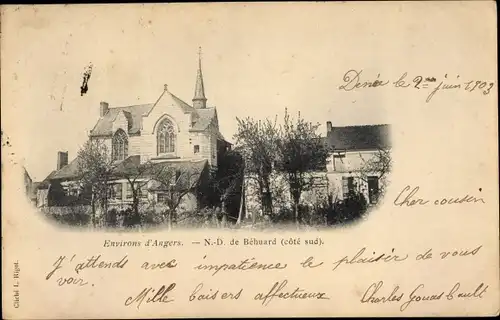 le 2me juin 1903
Cher cousin
Environs d'Angers. — N.-D. de Béhuard (côté sud).
J'attends avec impatience le plaisir de vous
voir.
Mille baisers affectueux
Charles
Cliché L. Rigot.